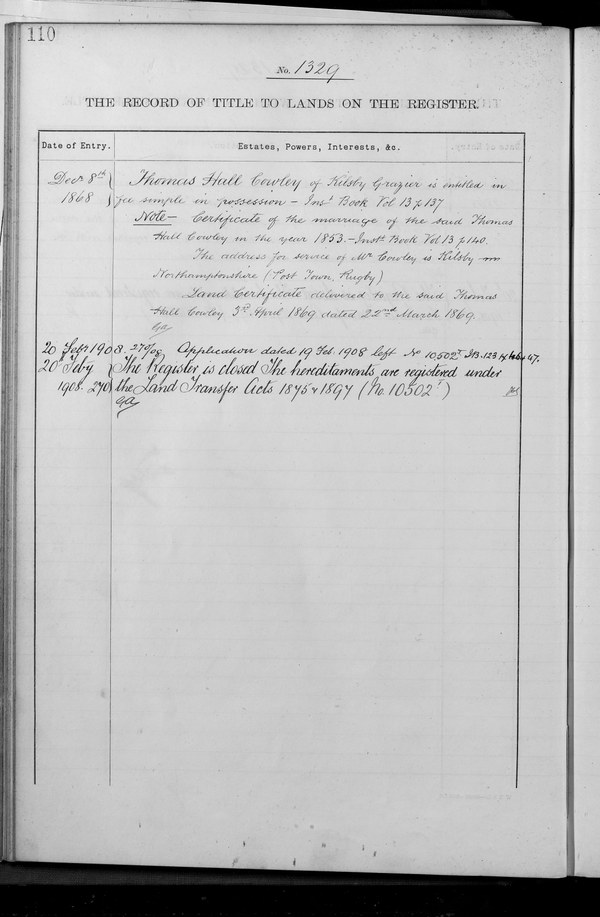 110
No. 1329
THE RECORD OF TITLE TO LANDS ON THE REGISTER.
Date of Entry.
Estates, Powers, Interests, &c.
Decr 8th
1868
Thomas Hall Cowley of Kilsby Grazier is entitled in
fee simple in possession – Inst. Book Vol 13 p 137
Note – Certificate of the marriage of the said Thomas
Hall Cowley in the year 1853. – Inst. Book Vol 13 p 140.
The address for service of Mr Cowley is Kilsby
Northamptonshire (Post Town, Rugby)
Land Certificate delivered to the said Thomas
Hall Cowley 3rd April 1869 dated 22nd March 1869.
20 Feby 1908. 270/08 Application dated 19 Feb. 1908 left No 10,502T
20 Feby
1908. 270
The Register is closed The hereditaments are registered under
the Land Transfer Acts 1875 & 1897 (No. 10502T)